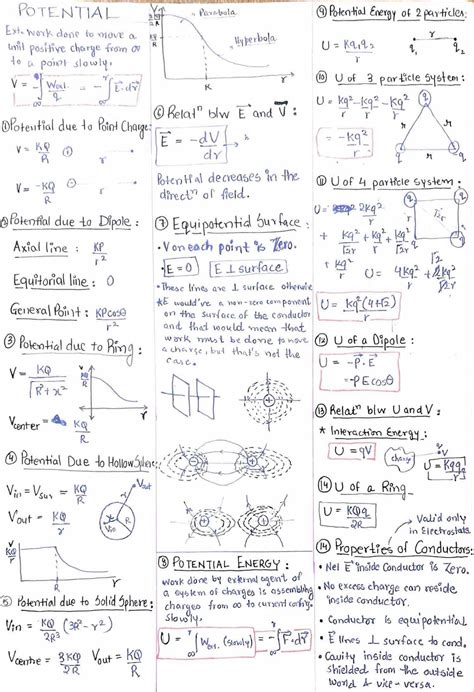 POTENTIAL
Ext. work done to move a
unit positive charge from ∞
to a point slowly.
V = -∫ Wext. / q = -∫ E.dr
① Potential due to Point Charge:
V = KQ / r
V = -KQ / r
② Potential due to Dipole:
Axial line : KP / r²
Equitorial line : 0
General Point : KPcosθ / r²
③ Potential due to Ring:
V = KQ / √R²+x²
Vcenter = KQ / R
④ Potential Due to Hollow Sphere
Vin = Vsur = KQ / R
Vout = KQ / r
Vout
Vin
R
KQ / R
V
R
r
⑤ Potential due to Solid Sphere:
Vin = KQ / 2R³ (3R² - r²)
Vcentre = 3KQ / 2R Vout = KQ / r
Parabola
Hyperbola
R
r
⑥ Relatⁿ b/w E and V :
E = -dV / dr
Potential decreases in the
directⁿ of field.
⑦ Equipotential Surface :
• V on each point is Zero.
• E = 0 E ⊥ surface
• These lines are ⊥ surface otherwise
E would've a non-zero component
on the surface of the conductor
and that would mean that
work must be done to move
a charge, but that's not the
case.
⑧ POTENTIAL ENERGY :
Work done by external agent of
a system of charges is assembling
charges from ∞ to current config.
slowly.
U = ∫ Wext. (slowly) = -∫ F.dr
⑨ Potential Energy of 2 particles
U = Kq₁q₂ / r
q₁ r q₂
⑩ U of 3 particle System :
U = Kq² / r - Kq² / r - Kq² / r
= -Kq² / r
q
r r
q r q
⑪ U of 4 particle system :
U = 2Kq² / r
+ Kq² / √2r + Kq² / r + Kq² / r
U = 4Kq² / r + √2Kq² / r
U = Kq² (4+√2) / r
⑫ U of a Dipole :
U = -P.E
= -PE cosθ
⑬ Relatⁿ b/w U and V :
* Interaction Energy :
U = qV
charge
U = Kqq / r
⑭ U of a Ring
U = KQq / 2R
Valid only
in Electrostats
⑭ Properties of Conductors:
• Net E inside Conductor is Zero.
• No excess charge can reside
inside conductor.
• Conductor is equipotential
• E lines ⊥ surface to cond.
• Cavity inside conductor is
shielded from the outside
world & vice-versa.